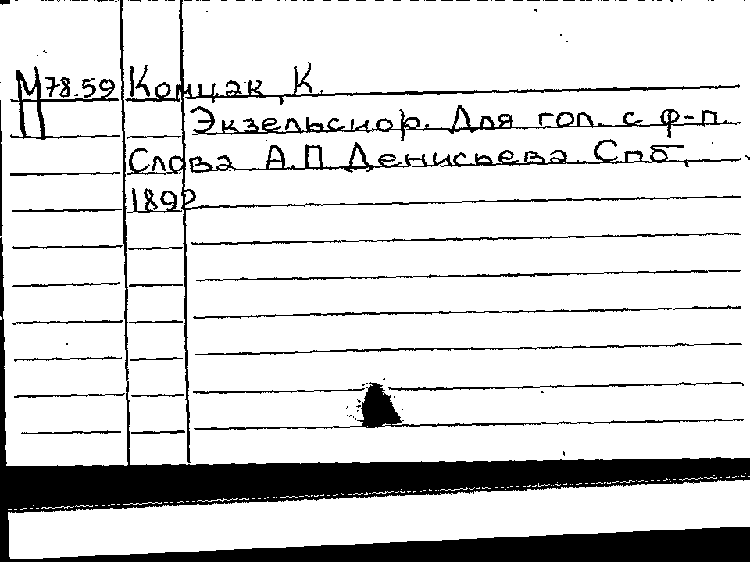 М 78.59 Комцак, К.
П
Экзельсиор. Для гол. с ф-п.
Слова А.П Денисьева Спб,
1892